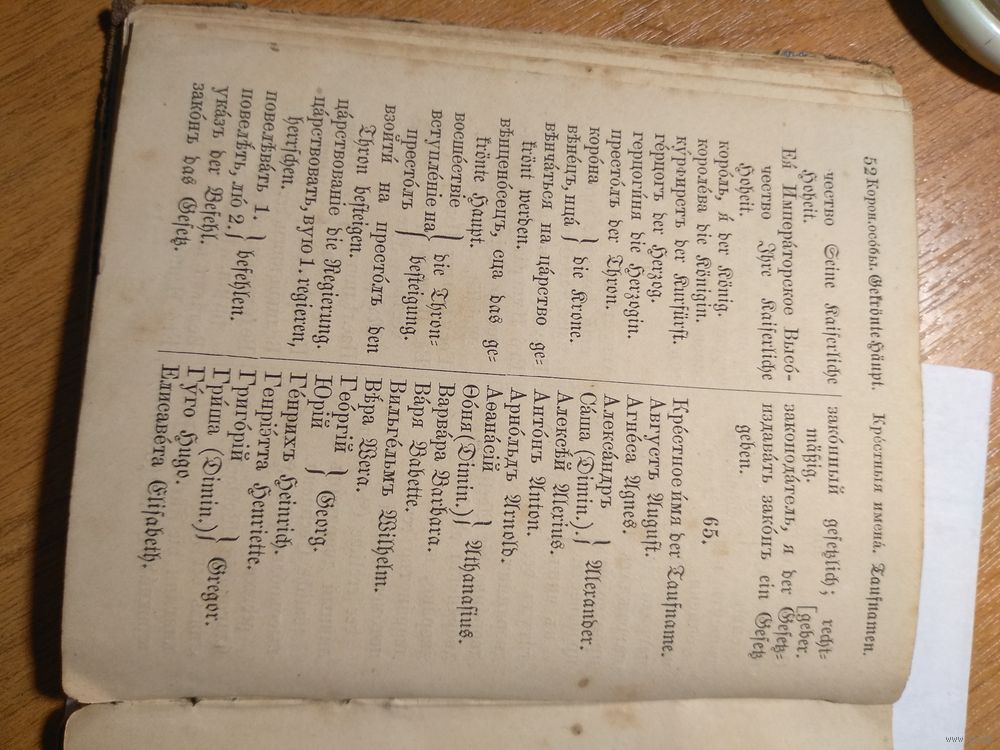 52 Корон. осо́бы. Gekrönte Häupt. Кре́стныя имена́. Taufnamen.
чество Seine Kaiserliche
Hoheit.
Ея́ Импера́торское Высо́-
чество Ihre Kaiserliche
Hoheit.
коро́ль, я́ der König.
короле́ва die Königin.
ку́рфирстъ der Kurfürst.
ге́рцогъ der Herzog.
герцоги́ня die Herzogin.
престо́лъ der Thron.
коро́на
вѣне́цъ, нца́ } die Krone.
вѣнча́ться на ца́рство ge-
krönt werden.
вѣнцено́сецъ, сца das ge-
krönte Haupt.
восше́ствіе
вступле́ніе на } die Thron-
престо́лъ } besteigung.
взойти́ на престо́лъ den
Thron besteigen.
ца́рствованіе die Regierung.
ца́рствовать, вую 1. regieren,
herrschen.
повелѣва́ть 1.
повелѣ́ть, лю́ 2. } befehlen.
ука́зъ der Befehl.
зако́нъ das Gesetz.
зако́нный gesetzlich; recht-
mäßig. [geber.
законода́тель, я der Gesetz-
издава́ть зако́нъ ein Gesetz
geben.
65.
Кре́стное и́мя der Taufname.
А́вгустъ August.
Агне́са Agnes.
Алекса́ндръ
Са́ша (Dimin.) } Alexander.
Алексѣ́й Alexius.
Анто́нъ Anton.
Арно́льдъ Arnold.
Аѳана́сій
Ѳо́ня (Dimin.) } Athanasius.
Варва́ра Barbara.
Ва́ря Babette.
Вильге́льмъ Wilhelm.
Вѣ́ра Wera.
Гео́ргій
Ю́рій } Georg.
Ге́нрихъ Heinrich.
Генріе́тта Henriette.
Григо́рій
Гри́ша (Dimin.) } Gregor.
Гу́го Hugo.
Елисаве́та Elisabeth.